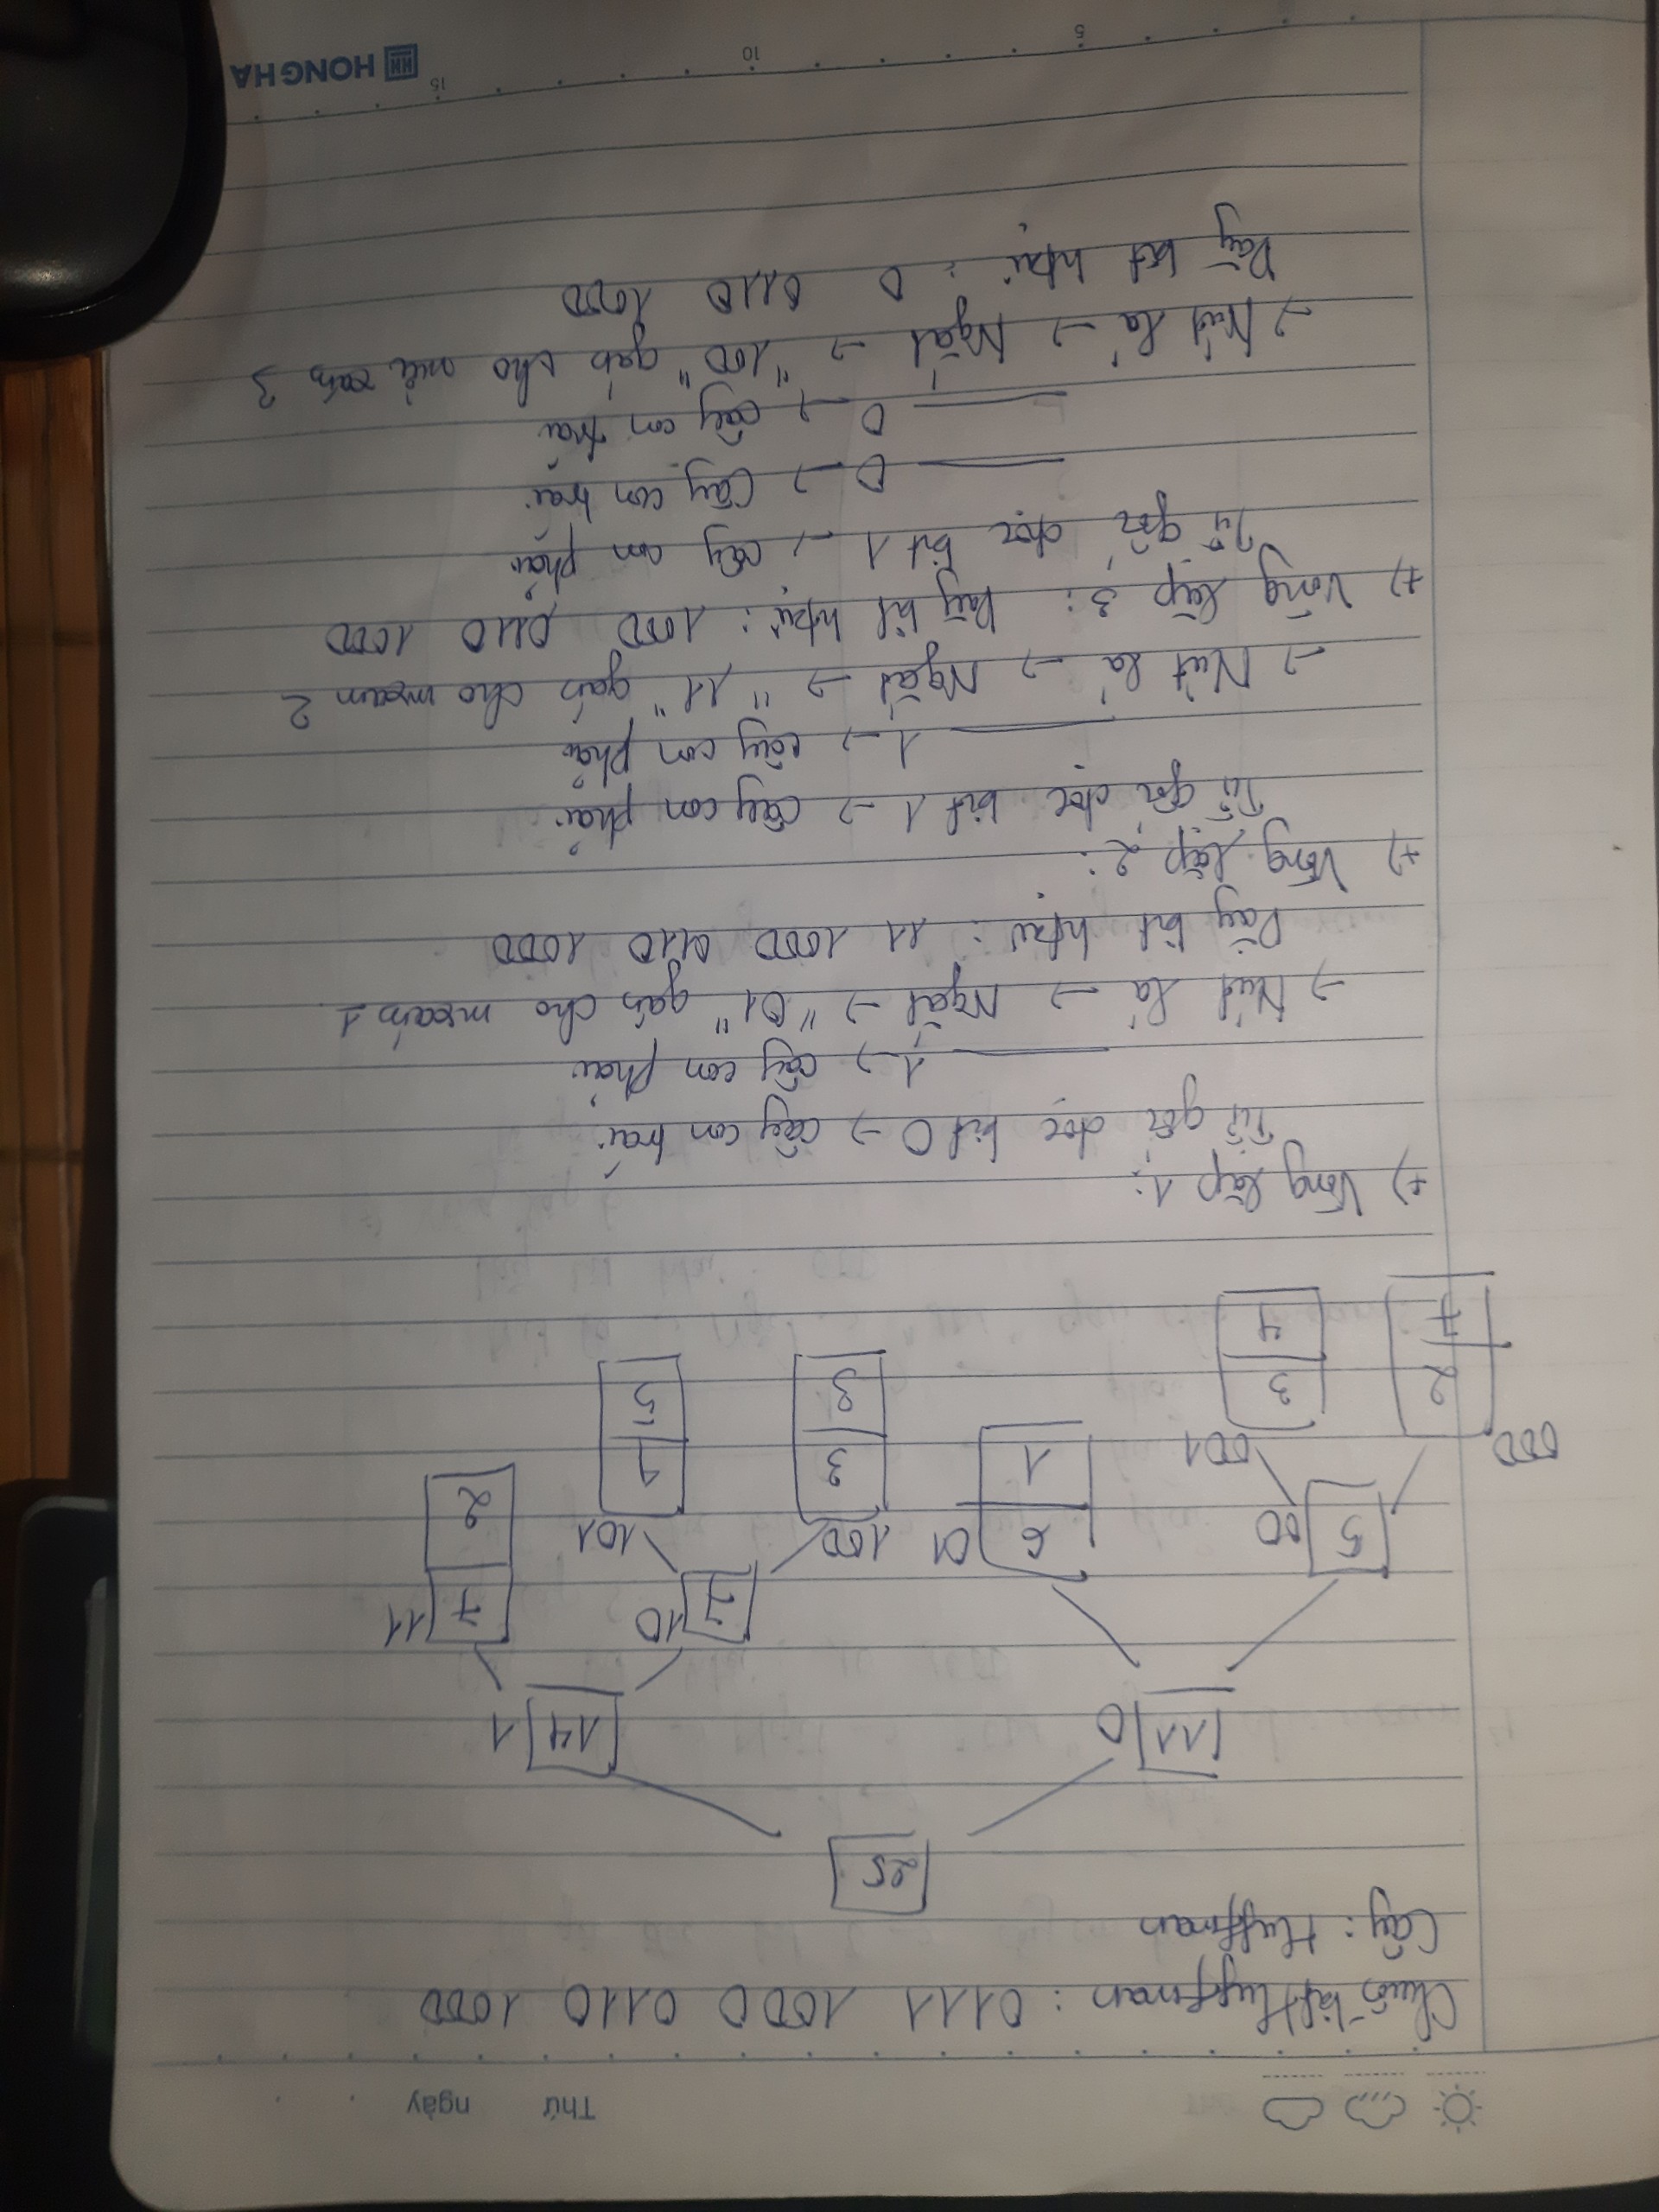 Thứ ngày
Chuỗi bit Huffman : 0111 1000 0110 1000
Cây : Huffman
25
11 0 14 1
5 00 6 1 01 7 10 7 2 11
000 2 7 001 3 4 100 3 3 101 4 5
+) Vòng lặp 1:
Từ gốc đọc bit 0 → cây con trái
1 → cây con phải
→ Nút lá → Ngắt → "01" gán cho mxám 1
Dãy bit htại : 11 1000 0110 1000
+) Vòng lặp 2:
Từ gốc đọc bit 1 → cây con phải
1 → cây con phải
→ Nút lá → Ngắt → "11" gán cho mxám 2
+) Vòng lặp 3: Dãy bit htại : 1000 0110 1000
Từ gốc đọc bit 1 → cây con phải
0 → cây con trái
0 → cây con trái
→ Nút lá → Ngắt → "100" gán cho mức xám 3
Dãy bit htại : 0 0110 1000
15 10 5
HONG HA